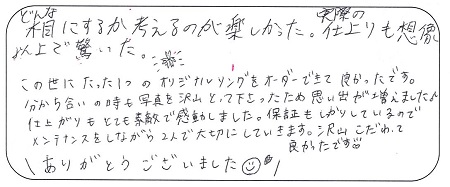 どんな相にするか考えるのが楽しかった。実際の仕上りも想像
以上で驚いた。
この世にたった1つのオリジナルリングをオーダーできて良かったです。
分かち合いの時も写真を沢山とって下さったため思い出が増えました♪
仕上がりもとても素敵で感動しました。保証もしっかりしているので
メンテナンスをしながら2人で大切にしていきます。沢山こだわって
良かったです
\ありがとうございました☺/